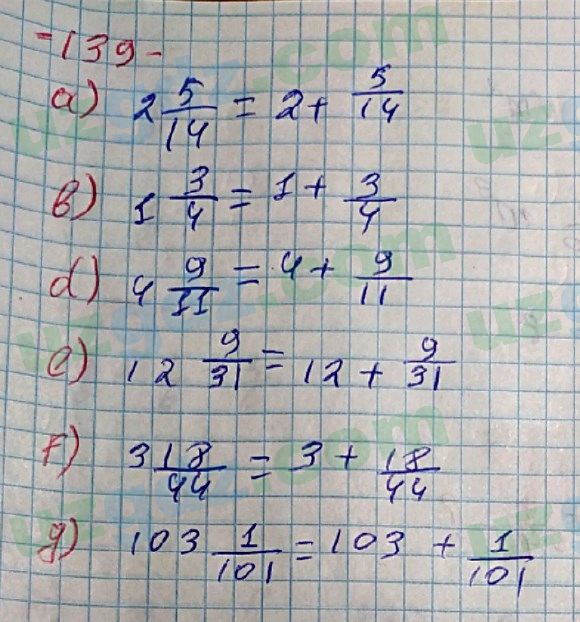 -139-
a) 2 5/14 = 2 + 5/14
b) 1 3/4 = 1 + 3/4
d) 4 9/11 = 4 + 9/11
e) 12 9/31 = 12 + 9/31
f) 3 18/44 = 3 + 18/44
g) 103 1/101 = 103 + 1/101